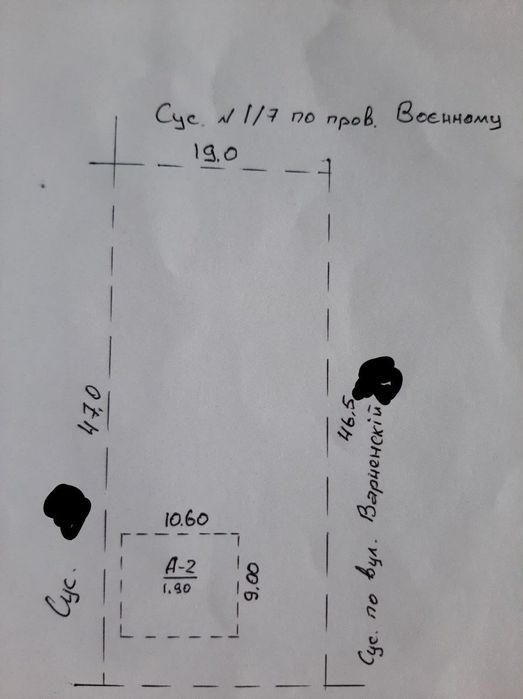 Сус. N 1/7 по пров. Воєнному
19.0
47,0
46,5
Сус. по вул. Варненскій
10.60
А-2
1.90
9.00
Сус.